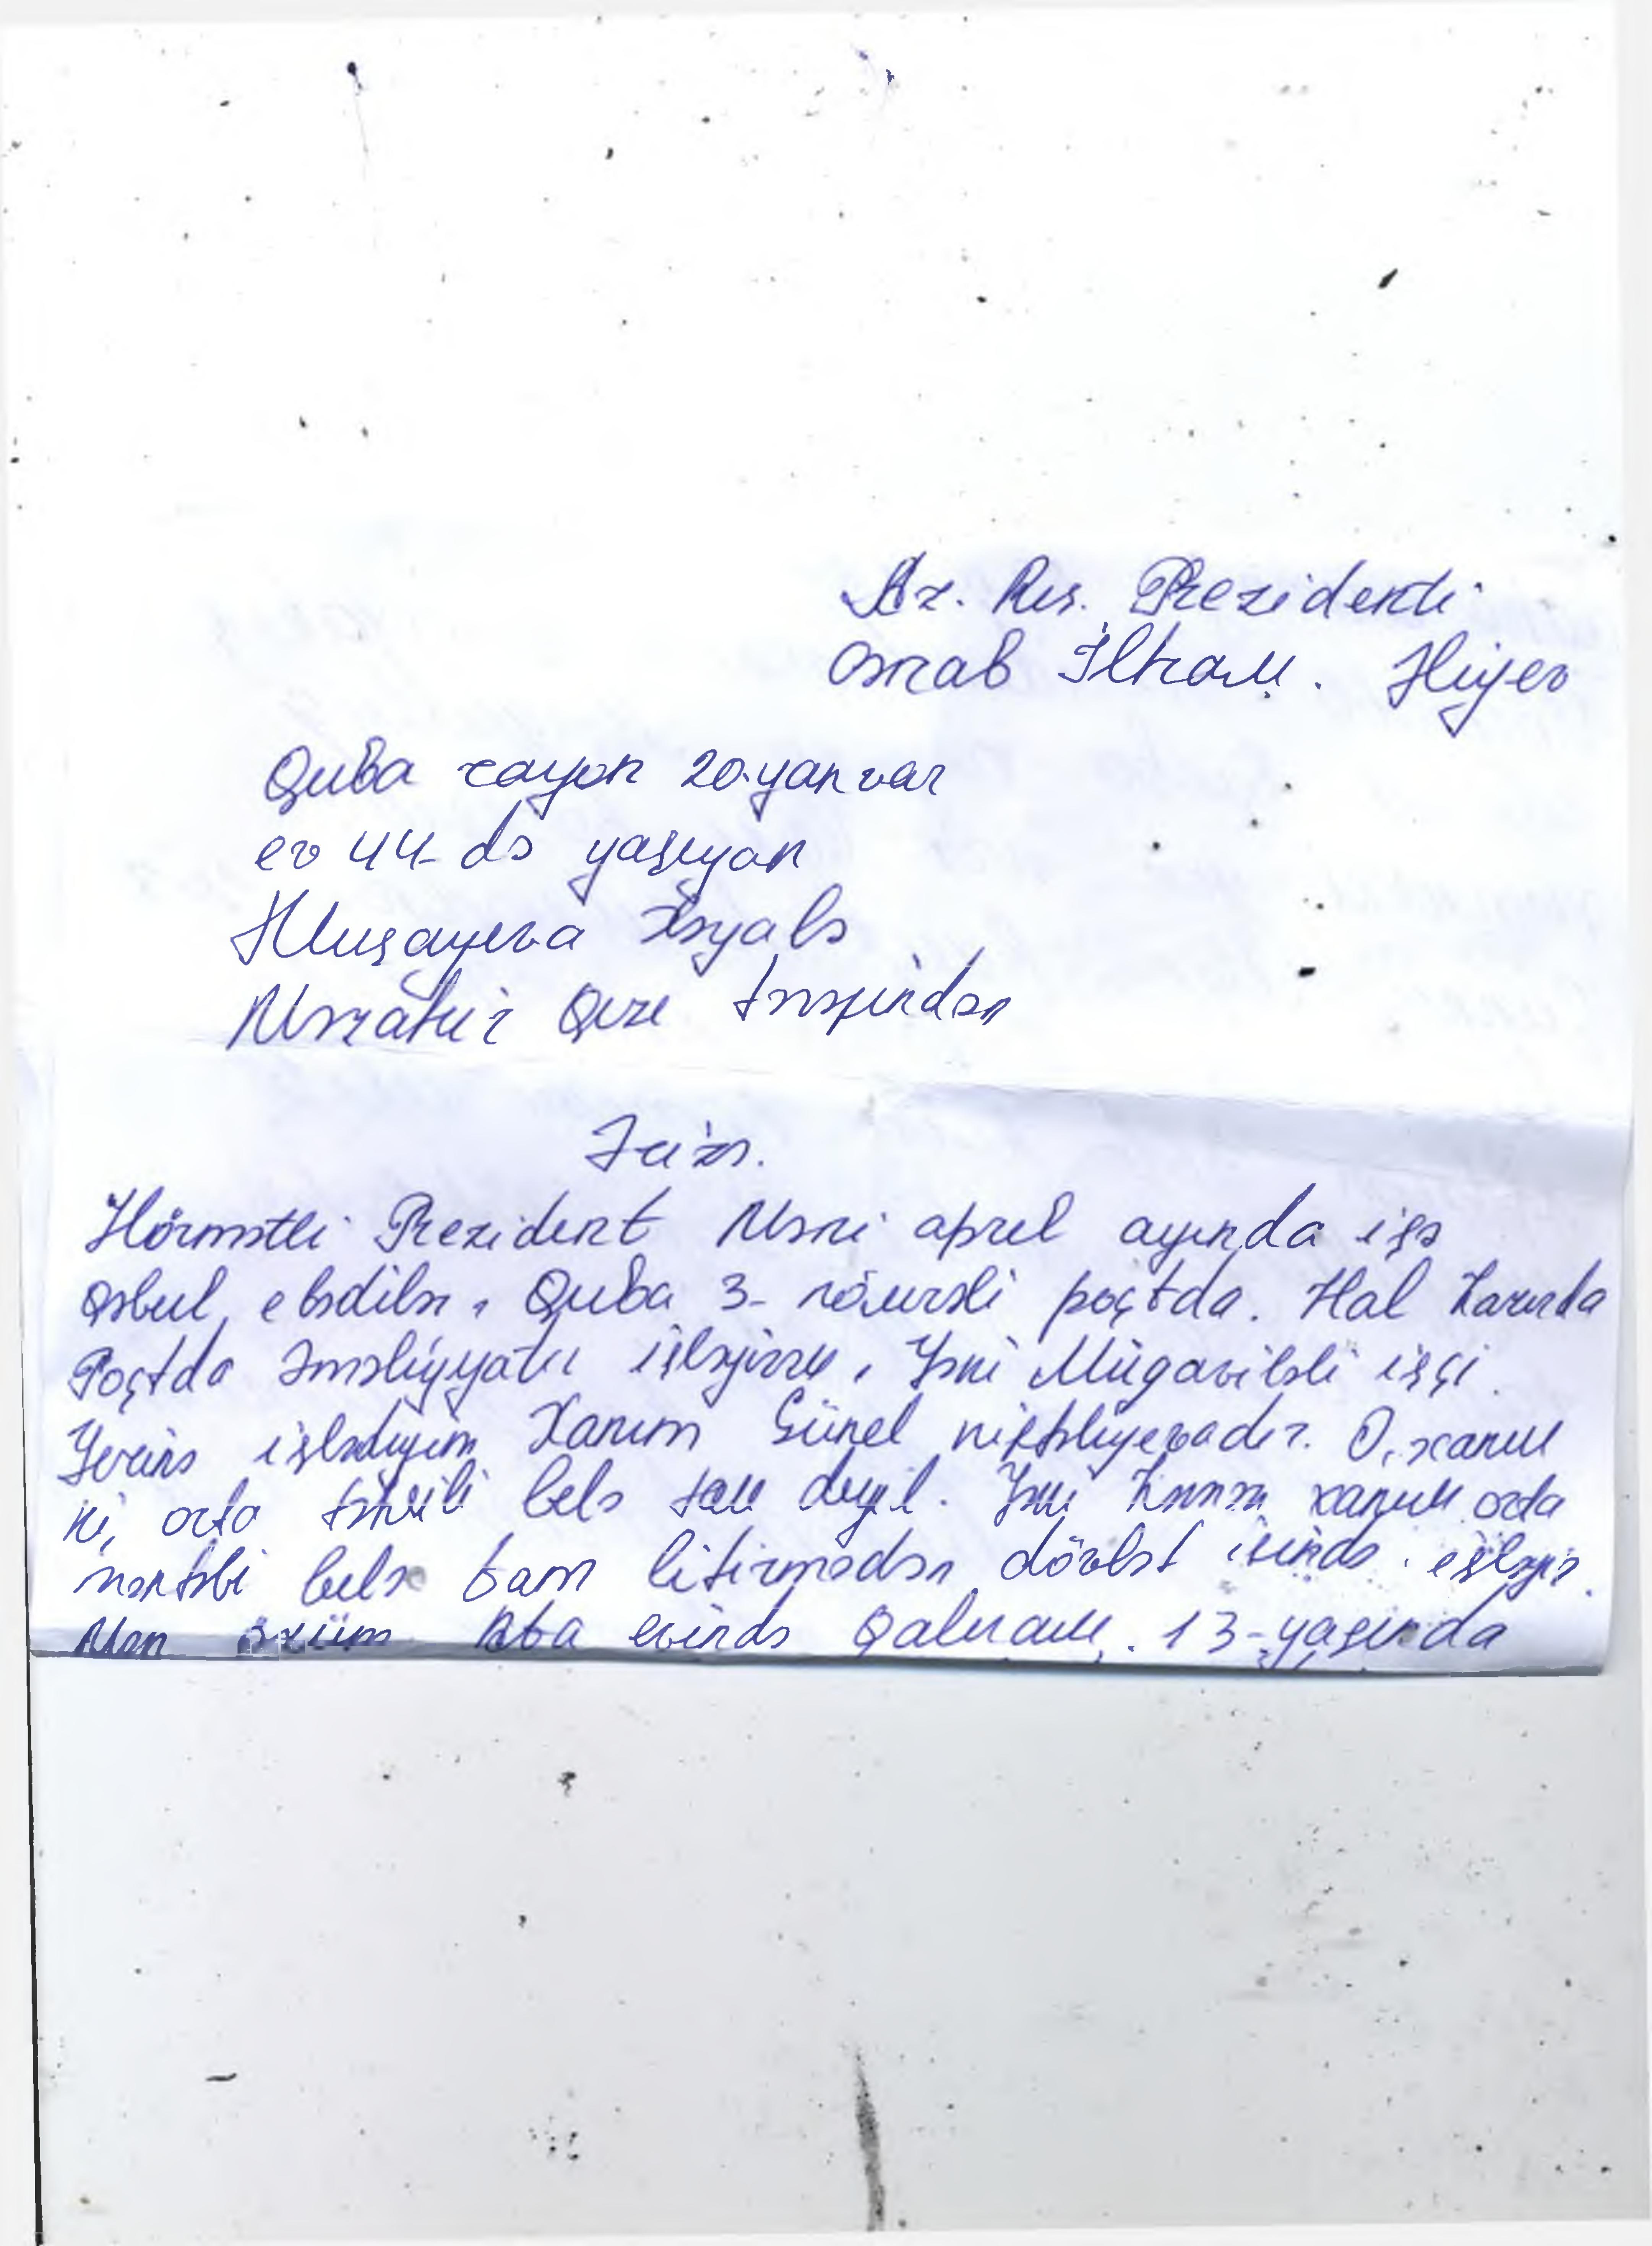 Az. Res. Prezidenti
cənab İlham. Əliyev
Quba rayon 20.yanvar
ev 44-də yaşıyan
Xəyalə
Qızı tərəfindən
Ərizə.
Hörmətli Prezident Məni aprel ayında işə
Qəbul, elədilər, Quba 3- nömrəli poçtda. Hal hazırda
Poçtda əməliyyatçı işləyirəm, Yəni Müqaviləli işçi.
Yerinə işlədiyim Xanım Günel O, xanım
ki, orta təhsili belə tam deyil. Yəni həmən xanım orta
məktəbi belə tam bitirmədən dövlət işində işləyir.
Mən özüm Ata evində Qalıram. 13-yaşında